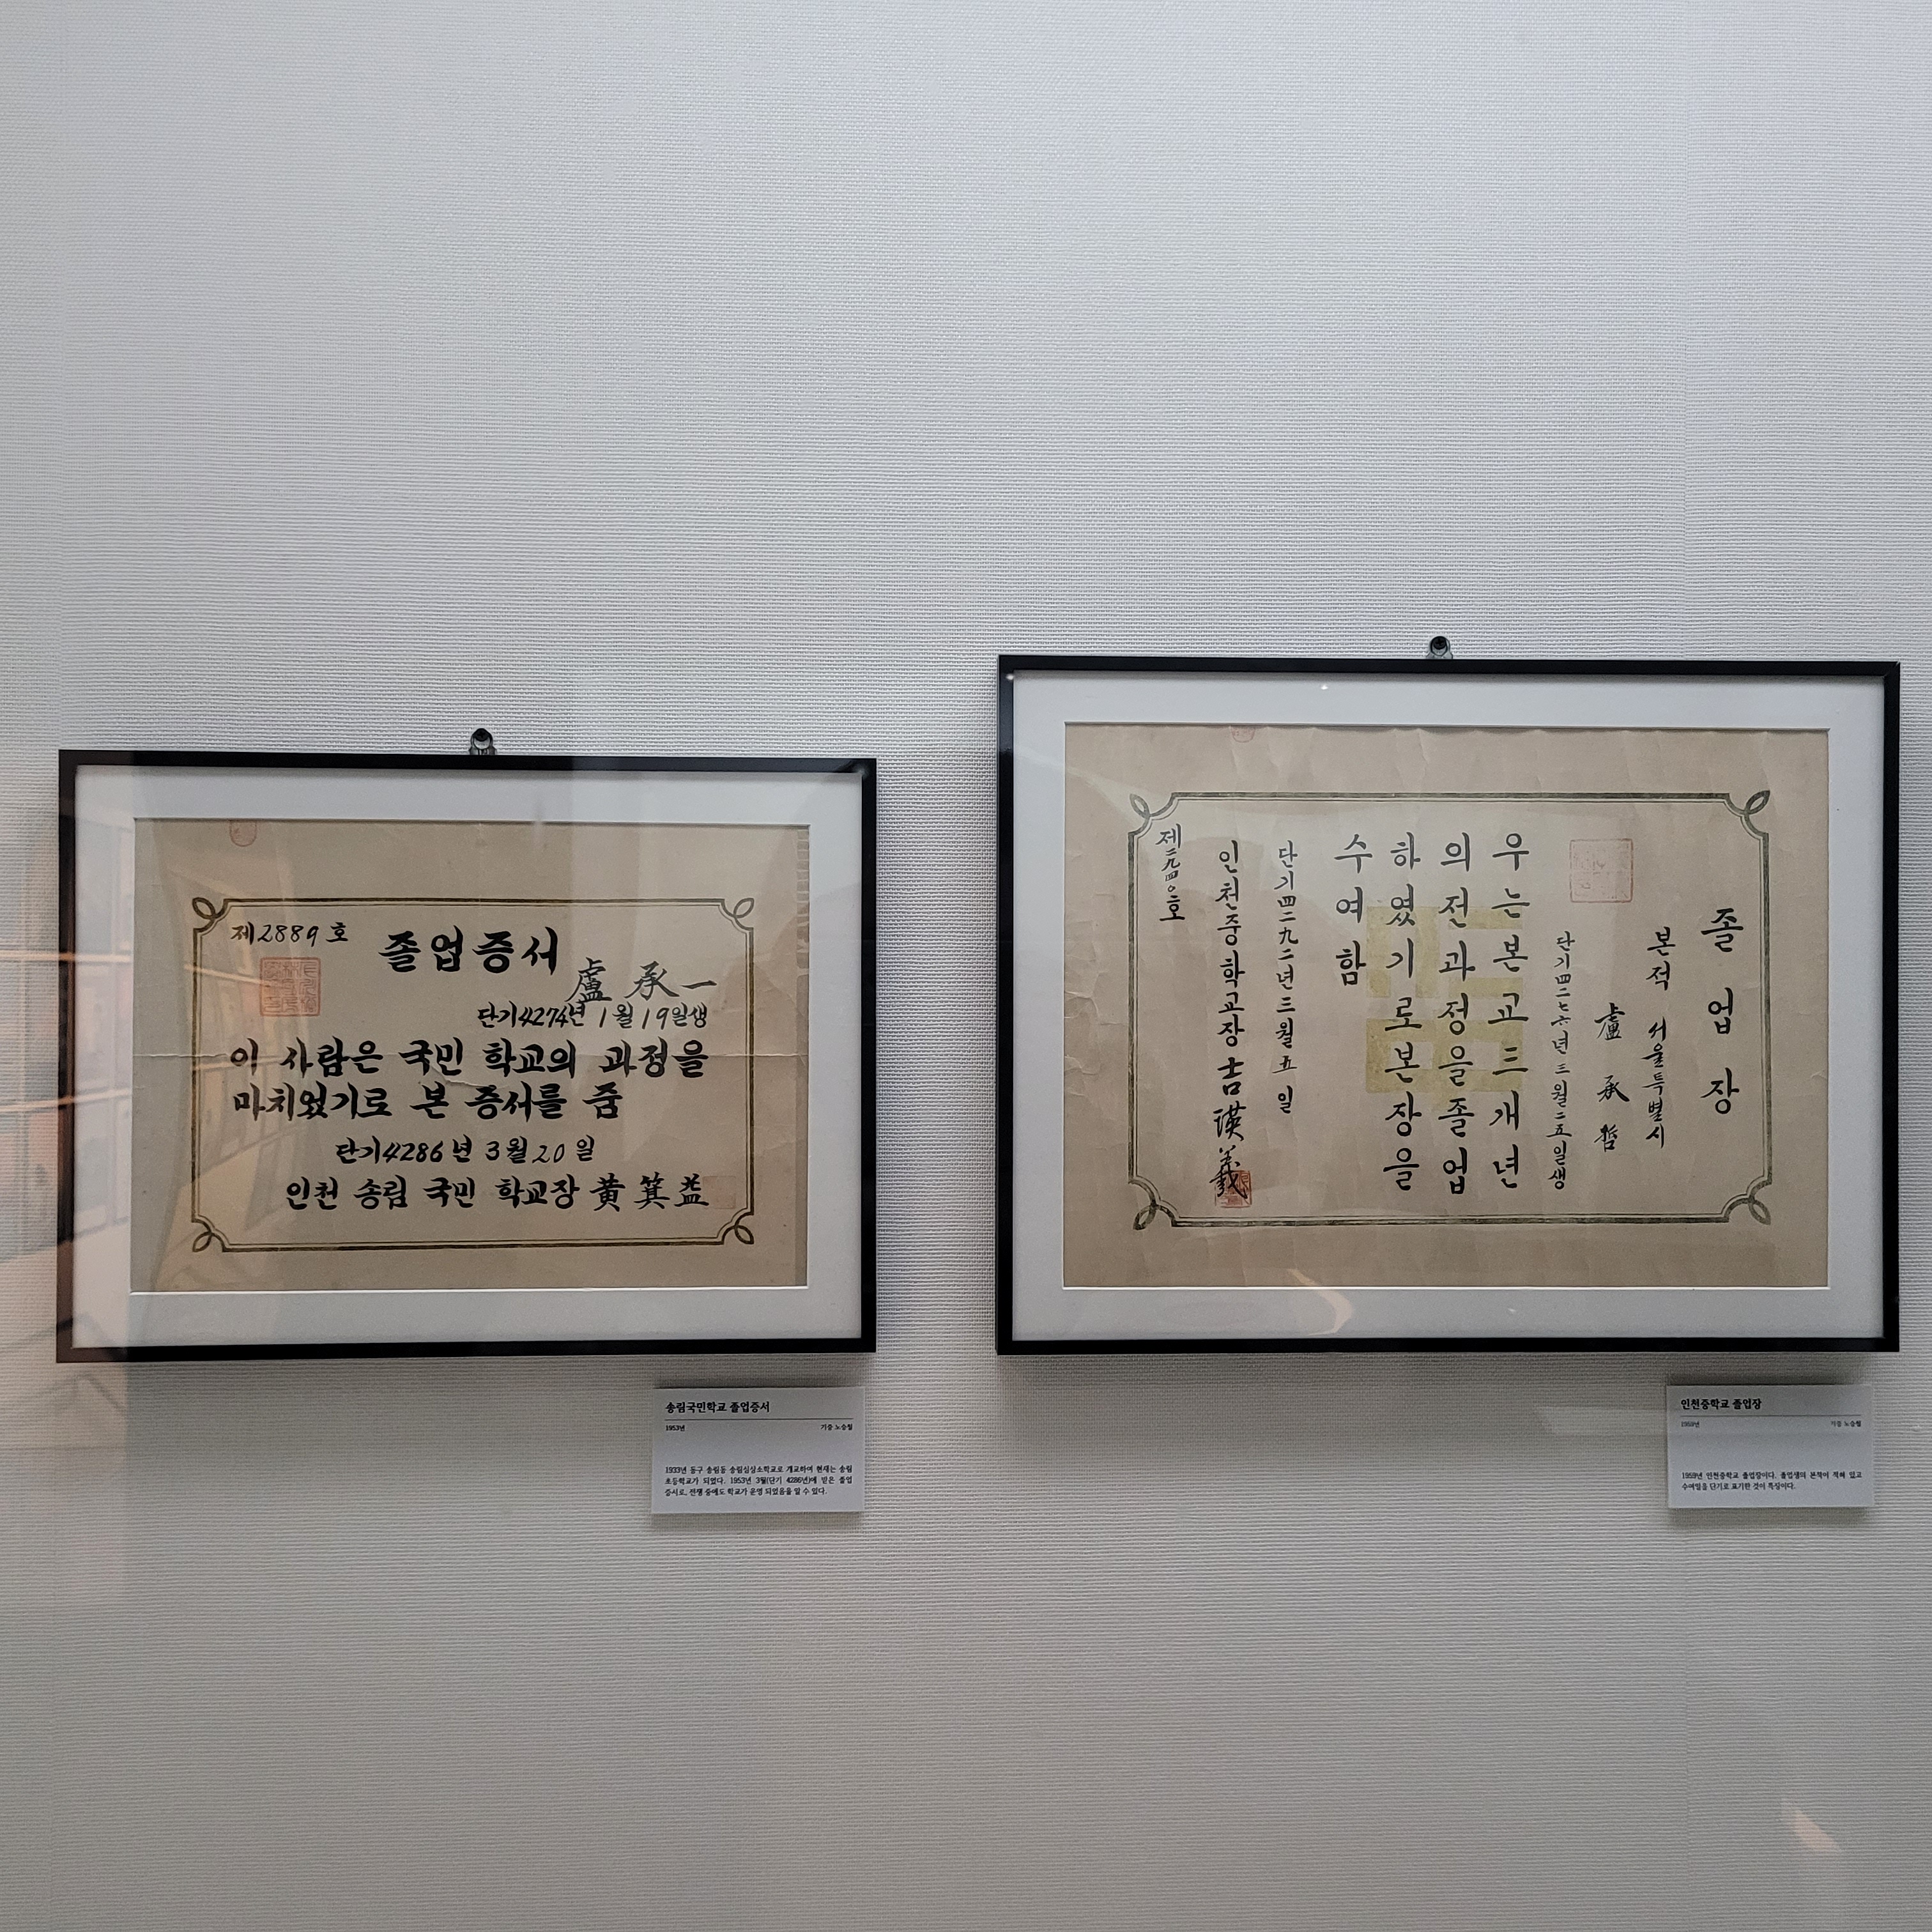 제2889호
졸업증서
盧承一
단기4274년 1월 19일생
이 사람은 국민 학교의 과정을
마치었기로 본 증서를 줌
단기4286년 3월 20일
인천 송림 국민 학교장 黄箕益
송림국민학교 졸업증서
1953년
기증 노승철
1933년 동구 송림동 송림심상소학교로 개교하여 현재는 송림
초등학교가 되었다. 1953년 3월(단기 4286년)에 받은 졸업
증서로, 전쟁 중에도 학교가 운영 되었음을 알 수 있다.
졸업장
본적 서울특별시
盧承哲
단기四二七六년三월二五일생
우는본교三개년
의전과정을졸업
하였기로본장을
수여함
단기四二九二년三월五일
인천중학교장 吉瑛羲
제二九四〇호
인천중학교 졸업장
1959년
기증 노승철
1959년 인천중학교 졸업장이다. 졸업생의 본적이 적혀 있고
수여일을 단기로 표기한 것이 특징이다.